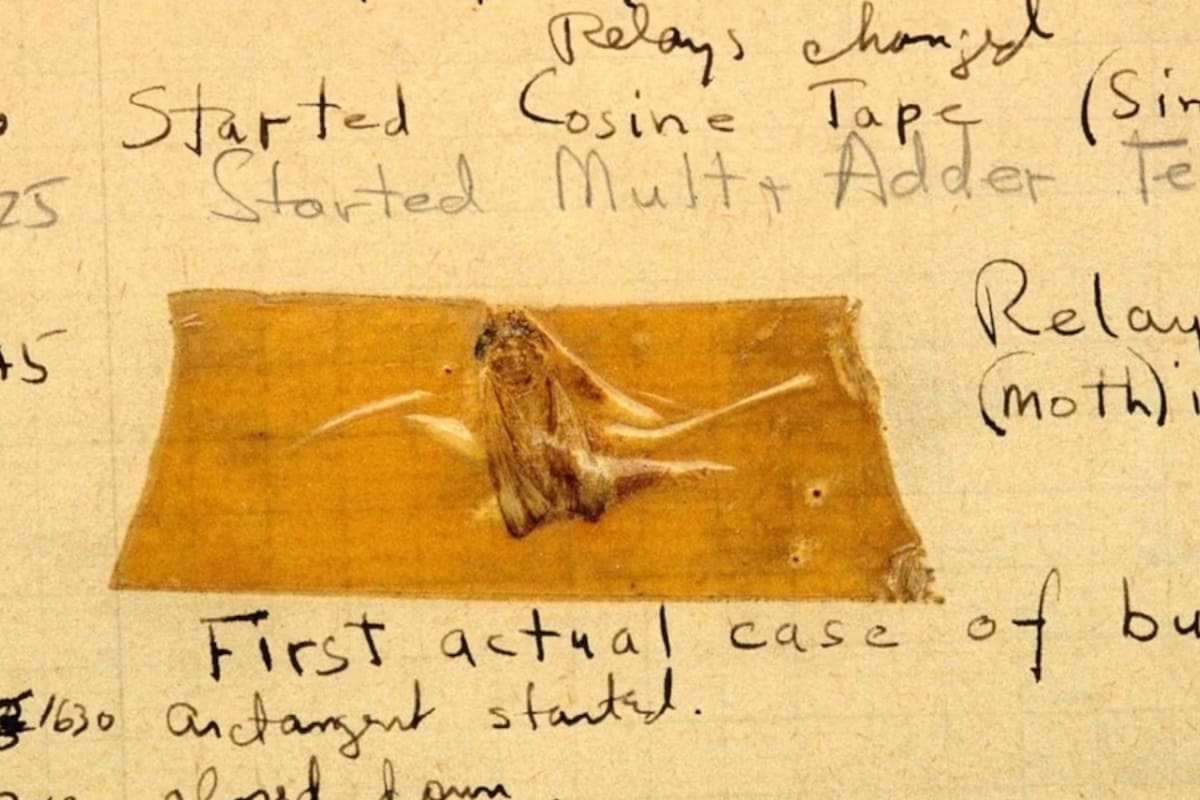 Relays changed
Started Cosine Tape (Sin
25 Started Mult+ Adder Te
45 Relay
(moth) i
First actual case of bu
1630 arctangent started.
closed down.